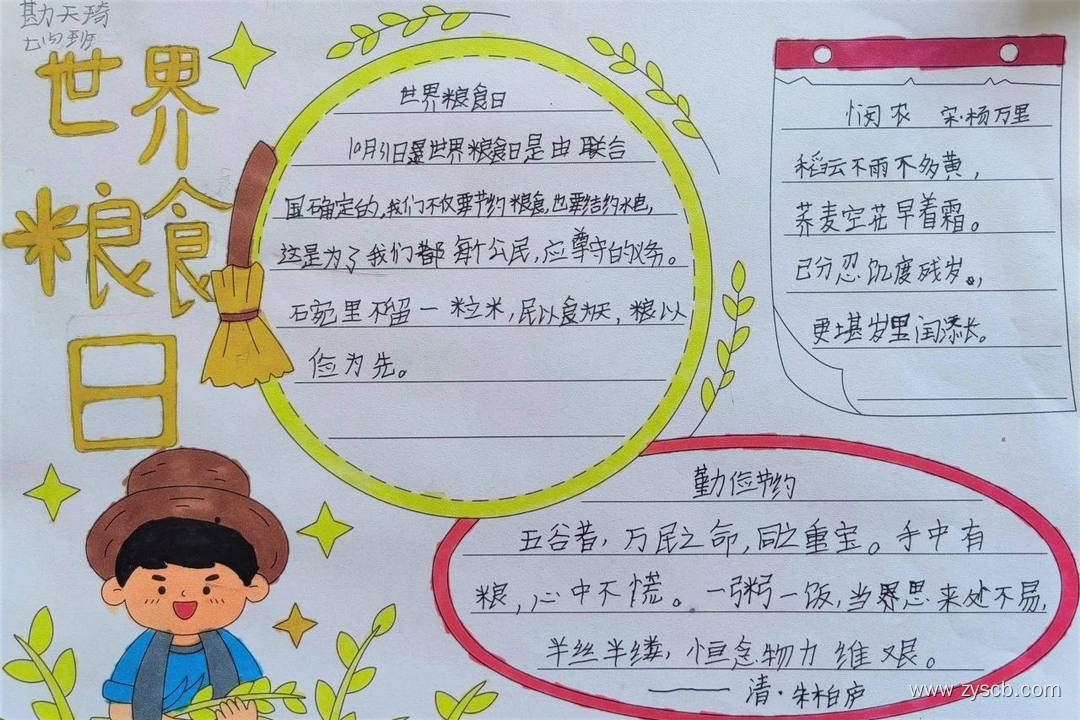 勘天琦
七（5）班
世界
粮食
日
世界粮食日
10月31日是世界粮食日是由联合
国确定的,我们不仅要节约粮食,也要结约水电,
这是为了我们都每个公民,应尊守的义务。
石宛里不留一粒米,民以食为天,粮以
俭为先。
悯农 宋·杨万里
稻云不雨不多黄,
荞麦空花早着霜。
已分忍饥度残岁。,
更堪岁里闰添长。
勤俭节约
五谷者,万民之命,同之重宝。手中有
粮,心中不慌。一粥一饭,当界思来处不易,
半丝半缕,恒念物力维艰。
——清·朱柏庐
www.zyscb.com